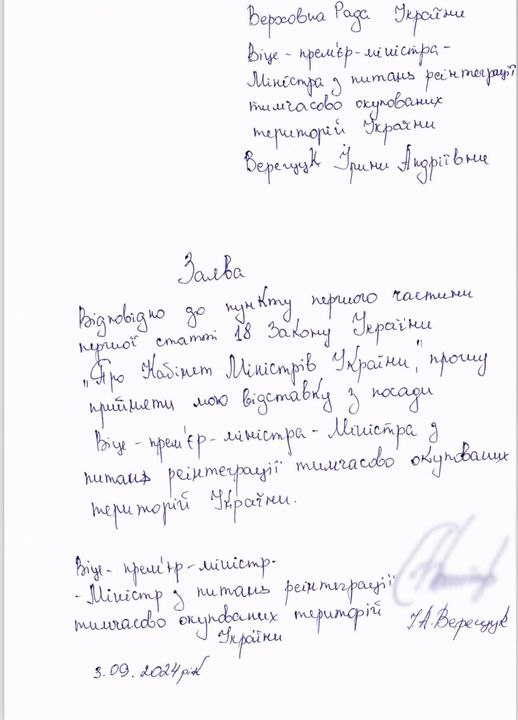 Верховна Рада України
Віце - прем'єр-міністра -
Міністра з питань реінтеграції
тимчасово окупованих
територій України
Верещук Ірини Андріївни
Заява
Відповідно до пункту першого частини
першої статті 18 Закону України
„Про Кабінет Міністрів України", прошу
прийняти мою відставку з посади
Віце - прем'єр-міністра - Міністра з
питань реінтеграції тимчасово окупованих
територій України.
Віце - прем'єр-міністр-
- Міністр з питань реінтеграції
тимчасово окупованих територій
України
І.А.Верещук
3.09.2024рік